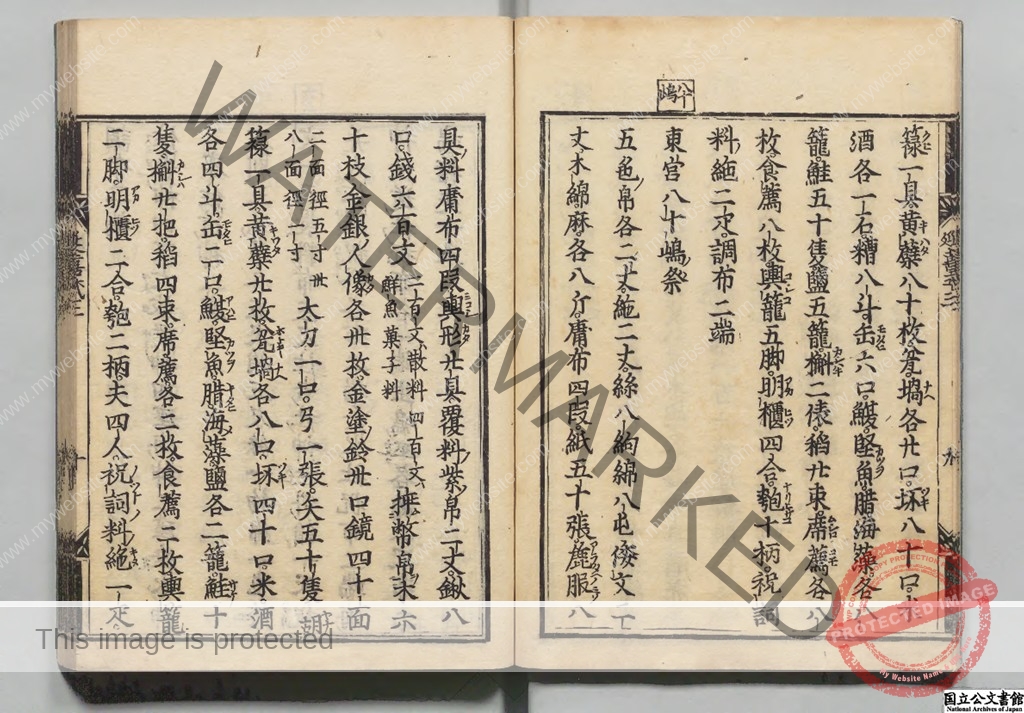 籙一具黄蘗八十枚瓫堝各廿口坏八十口米
酒各一石糟八斗缶六口鰒堅魚腊海藻各八
籠鮭五十隻鹽五籠檞二俵稻廿束席薦各八
枚食薦八枚輿籠五脚明櫃四合匏十柄祝詞
料絁二疋調布二端
八十嶋
東宮八十嶋祭
五色帛各二丈絁二丈絲八絇綿八屯倭文一
丈木綿麻各八斤庸布四段紙五十張鹿服八
具料庸布四段輿形廿具覆料紫帛二丈鍬八
口錢六百文
二百文散料四百文
鮮魚菓子料
挿幣帛木六
十枝金銀人像各卅枚金塗鈴卅口鏡四十面
二面徑五寸卅
八面徑一寸
太刀一口弓一張矢五十隻
籙一具黄蘗廿枚瓫堝各八口坏四十口米酒
各四斗缶二口鰒堅魚腊海藻鹽各二籠鮭十
隻檞廿把稻四束席薦各二枚食薦二枚輿籠
二脚明櫃二合匏二柄夫四人祝詞料絁一疋
WATERMARKED
This image is protected
COPY PROTECTION
PROTECTED
My Website Name
www.mywebsite.com
国立公文書館
National Archives of Japan